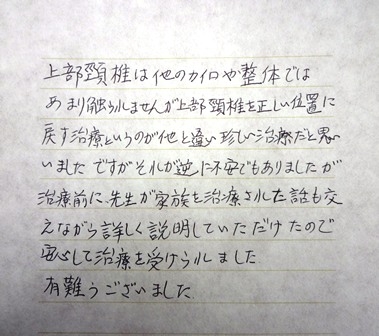 上部頸椎は他のカイロや整体では
あまり触られませんが上部頸椎を正しい位置に
戻す治療というのが他と違い珍しい治療だと思い
いました ですがそれが逆に不安でもありましたが
治療前に先生が家族を治療された話も交
えながら詳しく説明していただけたので
安心して治療を受けられました
有難うございました